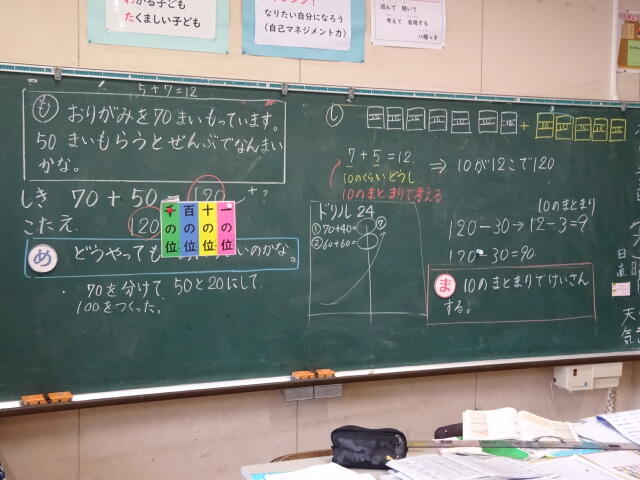 わかる子ども
たくましい子ども
なりたい自分になろう
（自己マネジメント力）
読んで 聴いて
考えて 表現する
八幡っ子
5+7=12
も おりがみを70まいもっています。
50まいもらうとぜんぶでなんまい
かな。
しき 70+50=120
+?
こたえ 120
千の位
百の位
十の位
一の位
め どうやっても
いのかな。
・70を分けて 50と20にして
100をつくった。
し
7+5=12
10のくらいどうし
10のまとまりで考える
⇒ 10が12こで120
ドリル 24
①70+40=
②60+60=
10のまとまり
120-30→12-3=9
120-30=90
ま 10のまとまりでけいさん
する。
日直
天気